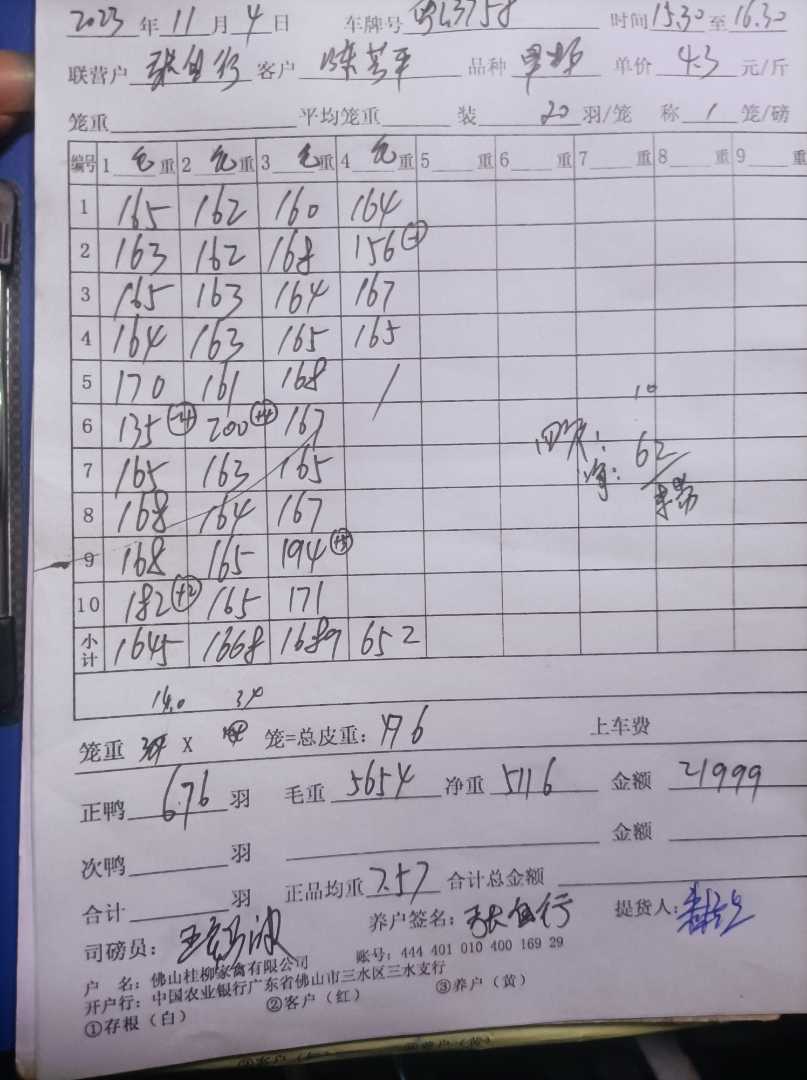 2023 年 11 月 4 日 车牌号 3758 时间 15.30 至 16.30
联营户 张自行 客户 陈 平 品种 单价 4.3 元/斤
笼重 平均笼重 装 20 羽/笼 称 1 笼/磅
编号 1 毛 重 2 毛 重 3 毛 重 4 毛 重 5 重 6 重 7 重 8 重 9 重
1 165 162 160 164
2 163 162 168 156
3 165 163 164 167
4 164 163 165 165
5 170 161 168 /
6 135 200 +4 167
7 165 163 165
8 168 164 167
9 168 165 194
10 182 +2 165 171
小计 1645 1668 1689 652
10
净: 62
14.0 34
笼重 X 笼=总皮重: 476 上车费
正鸭 676 羽 毛重 5654 净重 5116 金额 21999
次鸭 羽 金额
合计 羽 正品均重 7.57 合计总金额
司磅员: 王 波 养户签名: 张自行 提货人:
户 名: 佛山桂柳家禽有限公司 账号: 444 401 010 400 169 29
开户行: 中国农业银行广东省佛山市三水区三水支行
①存根（白） ②客户（红） ③养户（黄）